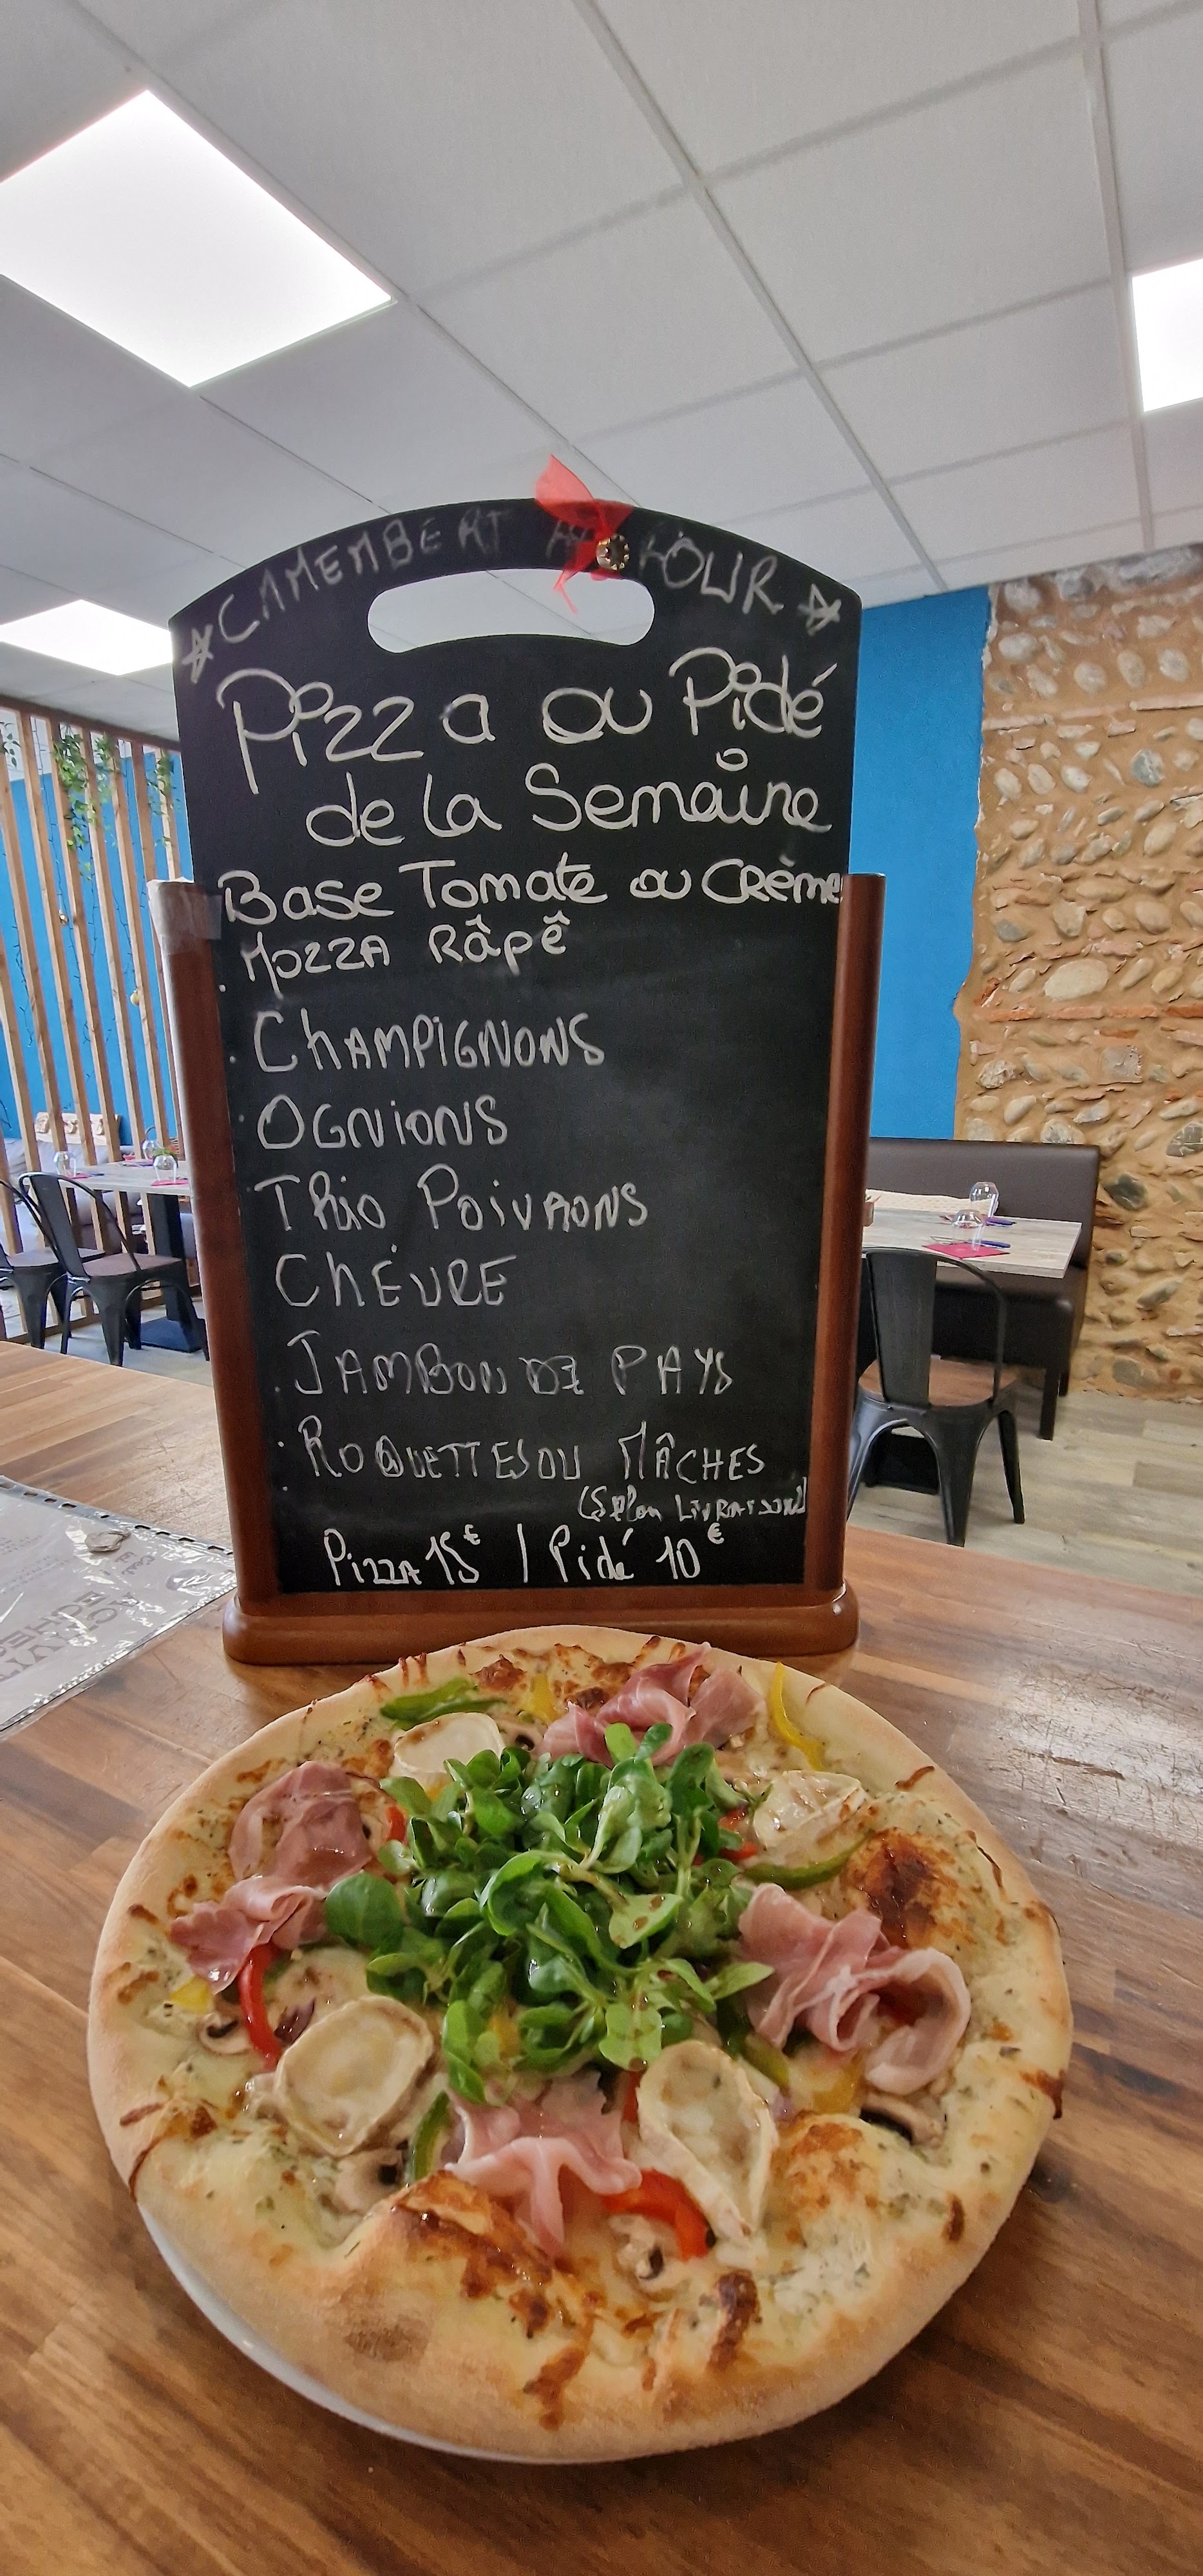 CAMEMBERT AU FOUR
Pizza ou Pidé
de la Semaine
Base Tomate ou Crème
. Mozza Râpê
. Champignons
. Ognions
Trio Poivrons
Chèvre
. Jambon de Pays
. Roquettes ou Mâches
(Selon Livraison)
Pizza 15€ / Pidé 10€